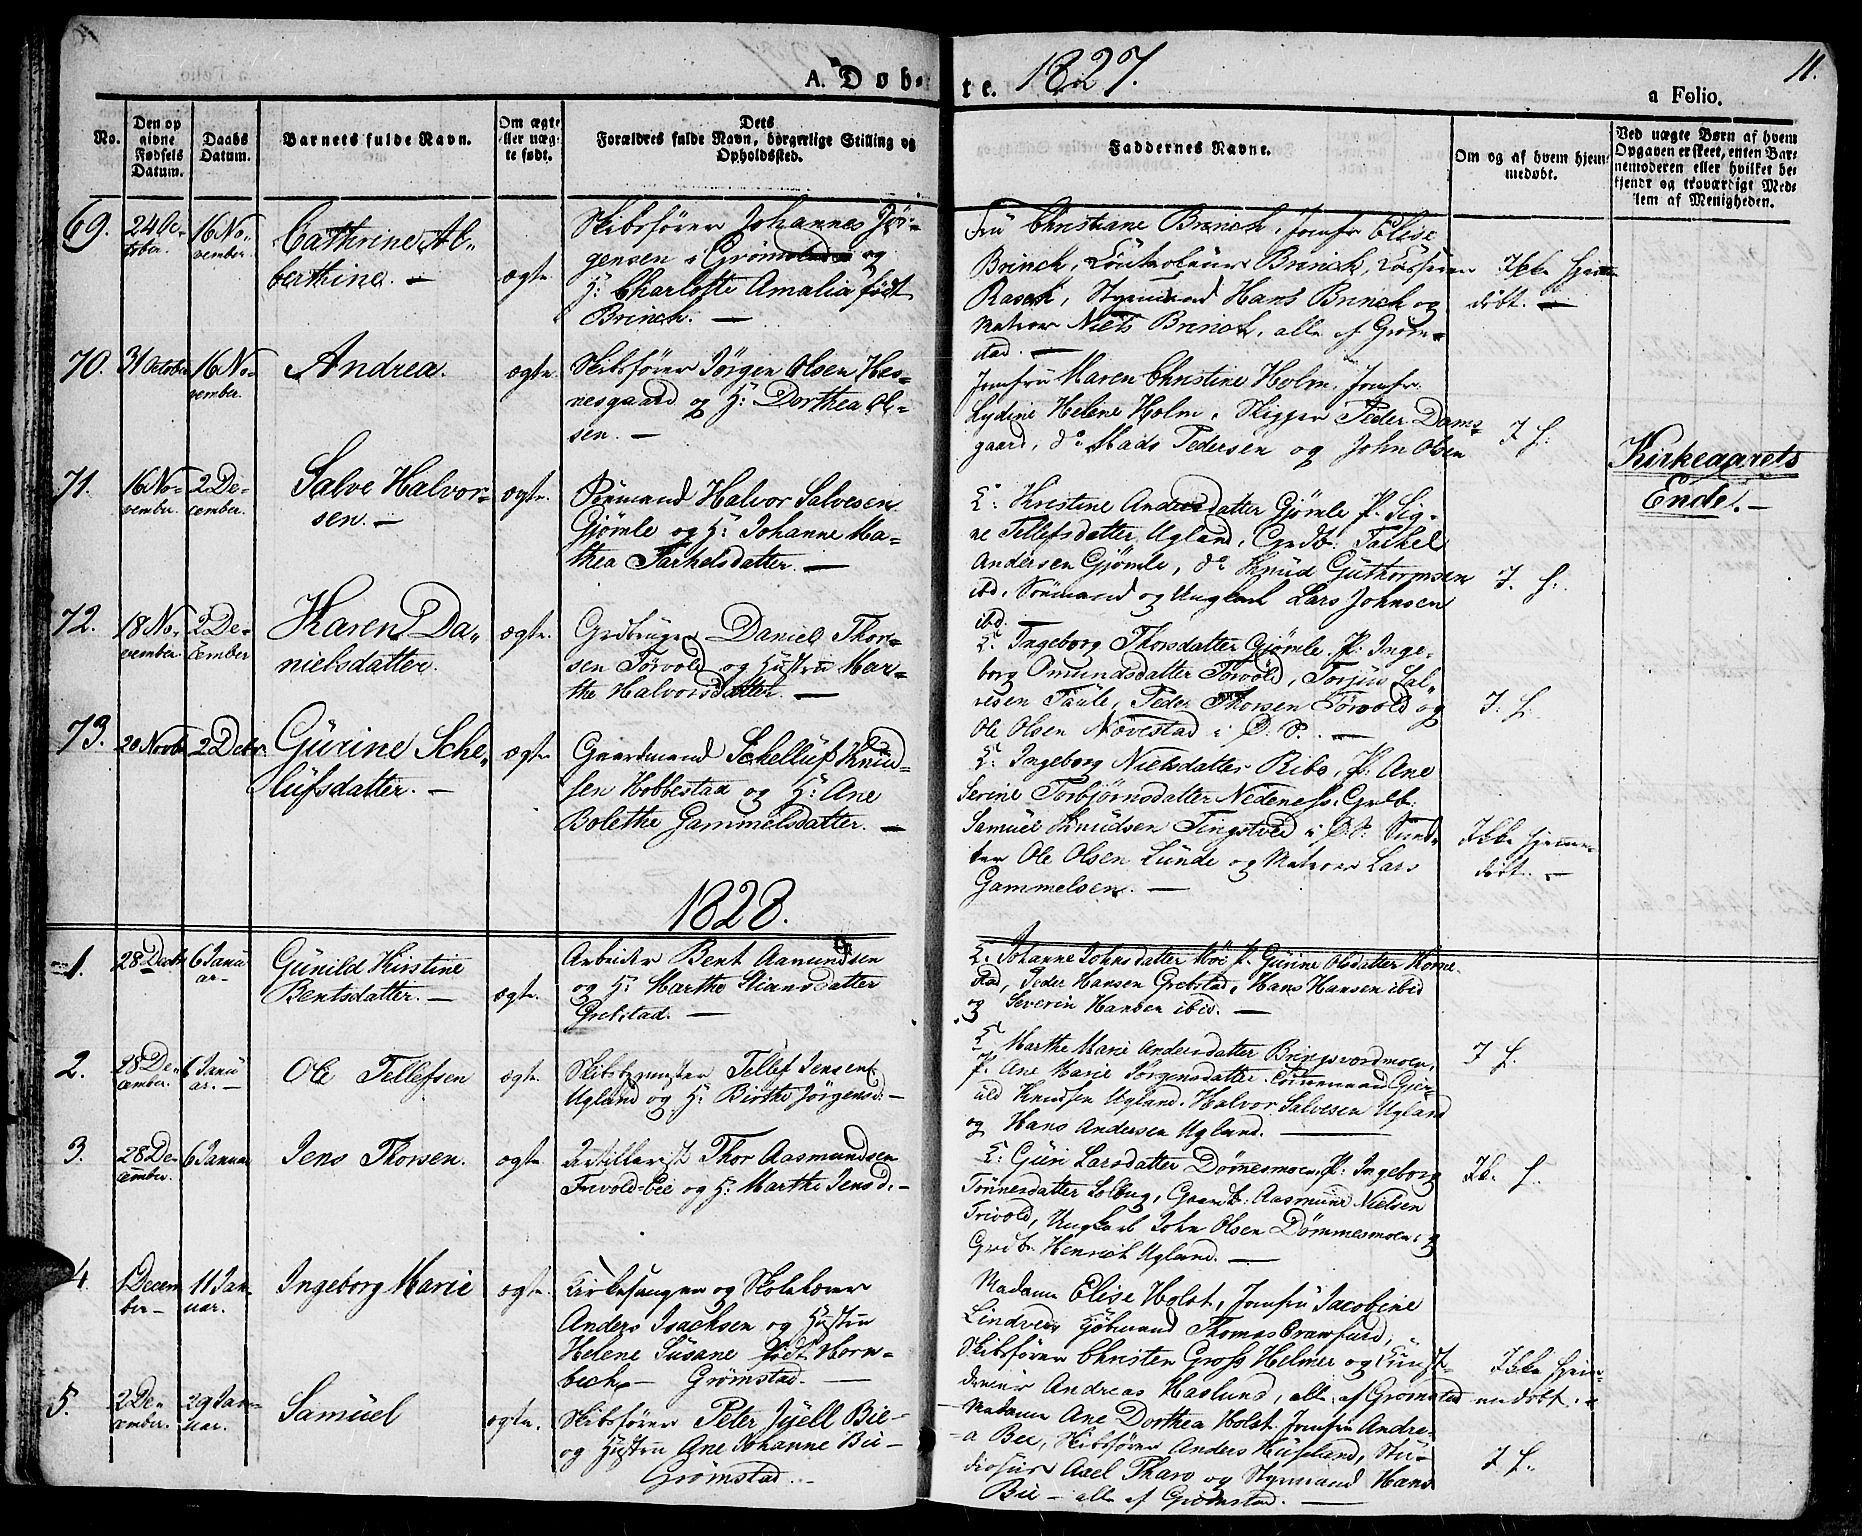 A. Døbte. 1827.
11.
a Folio.
No.
Den op
givne
Fødsels
Datum.
Daabs
Datum.
Barnets fulde Navn.
Om ægte
eller uæg
te født.
Dets
Forældres fulde Navn, borgerlige Stilling og
Opholdssted.
Faddernes Navne.
Om og af hvem hjem
medøbt.
Ved uægte Børn af hvem
Opgaven er skeet, enten Bar
nemoderen eller hvilket be
kjendt og troværdigt Med
lem af Menigheden.
69.
24 Oc-
tober.
16 No-
vember.
Cathrine Al-
berthine. —
ægte
Skibsfører Johannes Jør-
gensen i Grømstad og
H: Charlotte Amalia født
Brinch. —
Frü Christiane Brinch, Jomfr Elise
Brinch, Controleur Brinch, Casserer
Rasch, Styrmand Hans Brinch og
Matros Niels Brinch, alle af Grøm-
stad. —
Ikke hjem
døbt. —
70.
31 October
16 No-
vember.
Andrea.
ægte.
Skibsfører Jörgen Olsen Hes-
nesgaard og H: Dorthea Ol-
sen. —
Jomfrü Maren Christine Holm, Jomfr
Lydine Helene Holm, Skipper Peder Dams-
gaard, do Mads Pedersen og John Olsen
I. H:
Kirkeaarets
Ende. —
71.
16 No-
vember.
2 De-
cember.
Salve Halvor-
sen. —
ægte.
Sømand Halvor Salvesen
Gjømle og H: Johanne Ma-
thea Tarkelsdatter. —
Kristine Andersdatter Gjømle, P: Sig-
ne Tellefsdatter Ugland, Grdb. Tarkel
Andersen Gjømle, do Knud Guthormsen
ibd. Sømand og Ungkarl Lars Johnsen
ibd. —
I. H.
72.
18 No-
vember
2 De-
cember
Karen Da-
nielsdatter.
ægte.
Grdbruger Daniel Thor-
sen Törvold og Hüstrü Mar-
the Halvorsdatter. —
Ingeborg Thorsdatter Gjømle, P: Inge-
borg Omundsdatter Törvold, Torjüs Sal-
vesen Täüle, Peder Thorsen Törvold og
Ole Olsen Növestad i D. P. —
I. H.
73.
20 Novbr
2 Decbr.
Gürine Sche-
lüfsdatter. —
ægte
Gaardmand Schellüf Knüd-
sen Hobbestad og H: Ane
Bolethe Gammelsdatter. —
Ingeborg Nielsdatter Ribe, P: Ane
Serine Torbjørnsdatter Nedeness, Grdb:
Samüel Knüdsen Tingstved i D. P.
Ole Olsen Lunde og Matros Lars
Gammelsen. —
Ikke hjemme-
døbt. —
1828.
1.
28 Decbr
6 Janü
ar —
Günild Kirstine
Bentsdatter. —
ægte.
Arbeider Bent Aanundsen
og H: Marthe Stiansdatter
Grebstad. —
Johanne Johnsdatter Moe P: Gürine Olsdatter Home-
stad, Peder Hansen Grebstad, Hans Hansen ibid
og Severin Hansen ibid. —
2.
28 De-
cember.
6 Janü
ar. —
Ole Tellefsen
ægte.
Skibstømster Tellef Jensen
Ugland og H: Birthe Jørgensd. —
Marthe Marie Andersdatter Bringsvordmoen,
P. Ane Marie Jørgensdatter
Knudsen Ugland. Halvor Salvesen Ugland
og Hans Andersen Ugland. —
I H.
3.
28 De-
cember.
6 Januar
Jens Thorsen.
ægte
Thor Aasmundsen
Frivold-Eie og H: Marthe Jensd. —
Güri Larsdatter Dømmesmoen, P: Ingeborg
Tønnesdatter Solberg, Gaardb. Aasmund Nielsen
Frivold, Ungkarl John Olsen Dømmesmoen og
Grdbr Henrich Ugland. —
Ik. H.
4.
1 Decem
ber —
11 Jan-
uar.
Ingeborg Marie
ægte.
Kirkesanger og Skolelærer
Anders Isachsen og Hüstrü
Helene Süsane født Horn-
bech — Grømstad. —
Madame Elise Holst, Jomfrü Jacobine
Lindvers Kjöbmand Thomas Crawfurd,
Skibsfører Christen Gross Helmer og Kunst-
dreier Andreas Haslund, alle af Gromstad
Ikke hjem-
medøbt. —
5.
2 De-
cember.
29 Jan-
uar.
Samüel
ægte.
Skibsfører Peter Jyell Bie —
og Hüstrü Ane Johanne Bie —
Grömstad. —
Madame Ane Dorthea Holst Jomfrü Andre-
a Bie, Skibsfører Anders Hüseland, Stü-
diosüs Axel Tharo og Styrmand Hans
Bie — alle af Grømstad. —
I. H.